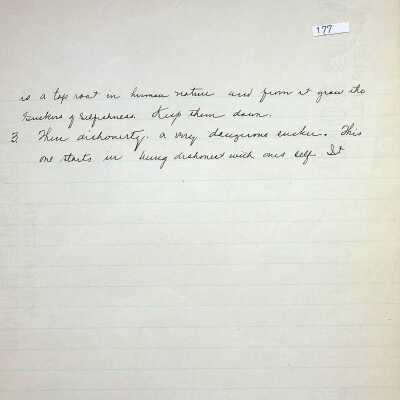 177
is a tap root in human nature and from it grow the
Suckers of Selfishness. Keep them down.
3. Then dishonesty. a very dangerous sucker. This
one starts in being dishonest with ones self. It